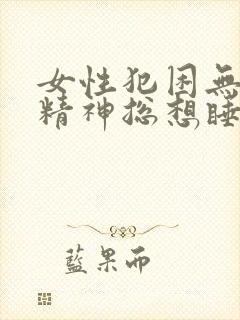 女性犯困無
精神総想睡
藍果而